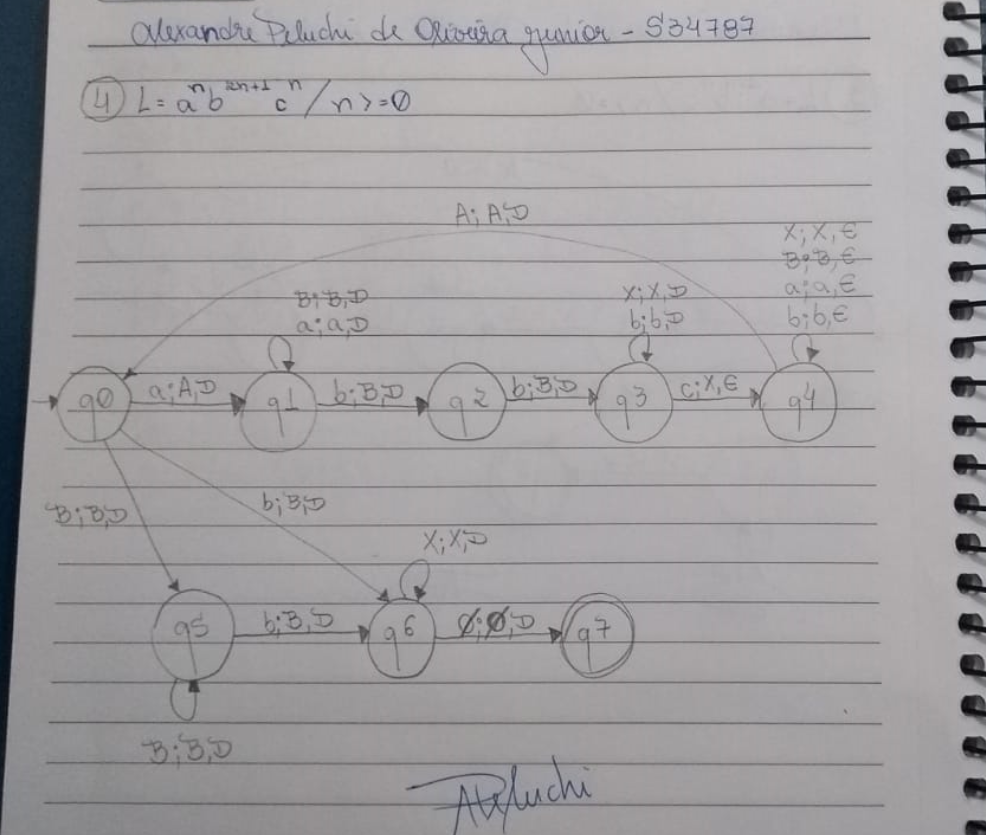 Alexandre Peluchi de Oliveira Junior - S34787
4) L = aⁿb²ⁿ⁺¹cⁿ / n >= 0
A; A, D
X; X, E
B; B, E
a; a, E
b; b, E
B; B, D
a; a, D
X; X, D
b; b, D
q0
a; A, D
q1
b; B, D
q2
b; B, D
q3
c; X, E
q4
B; B, D
b; B, D
X; X, D
q5
b; B, D
q6
Ø; Ø, D
q7
B; B, D
APeluchi